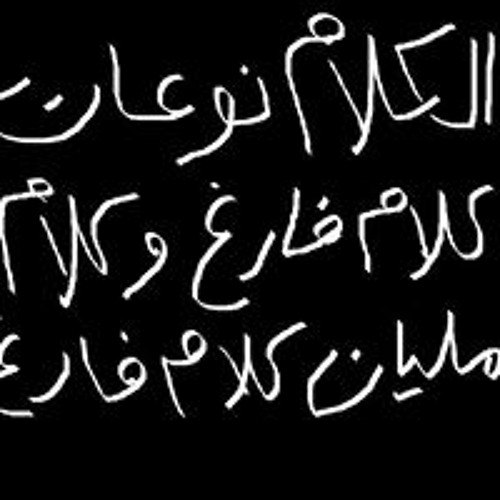 الكلام نوعان
كلام فارغ وكلام
مليان كلام فارغ